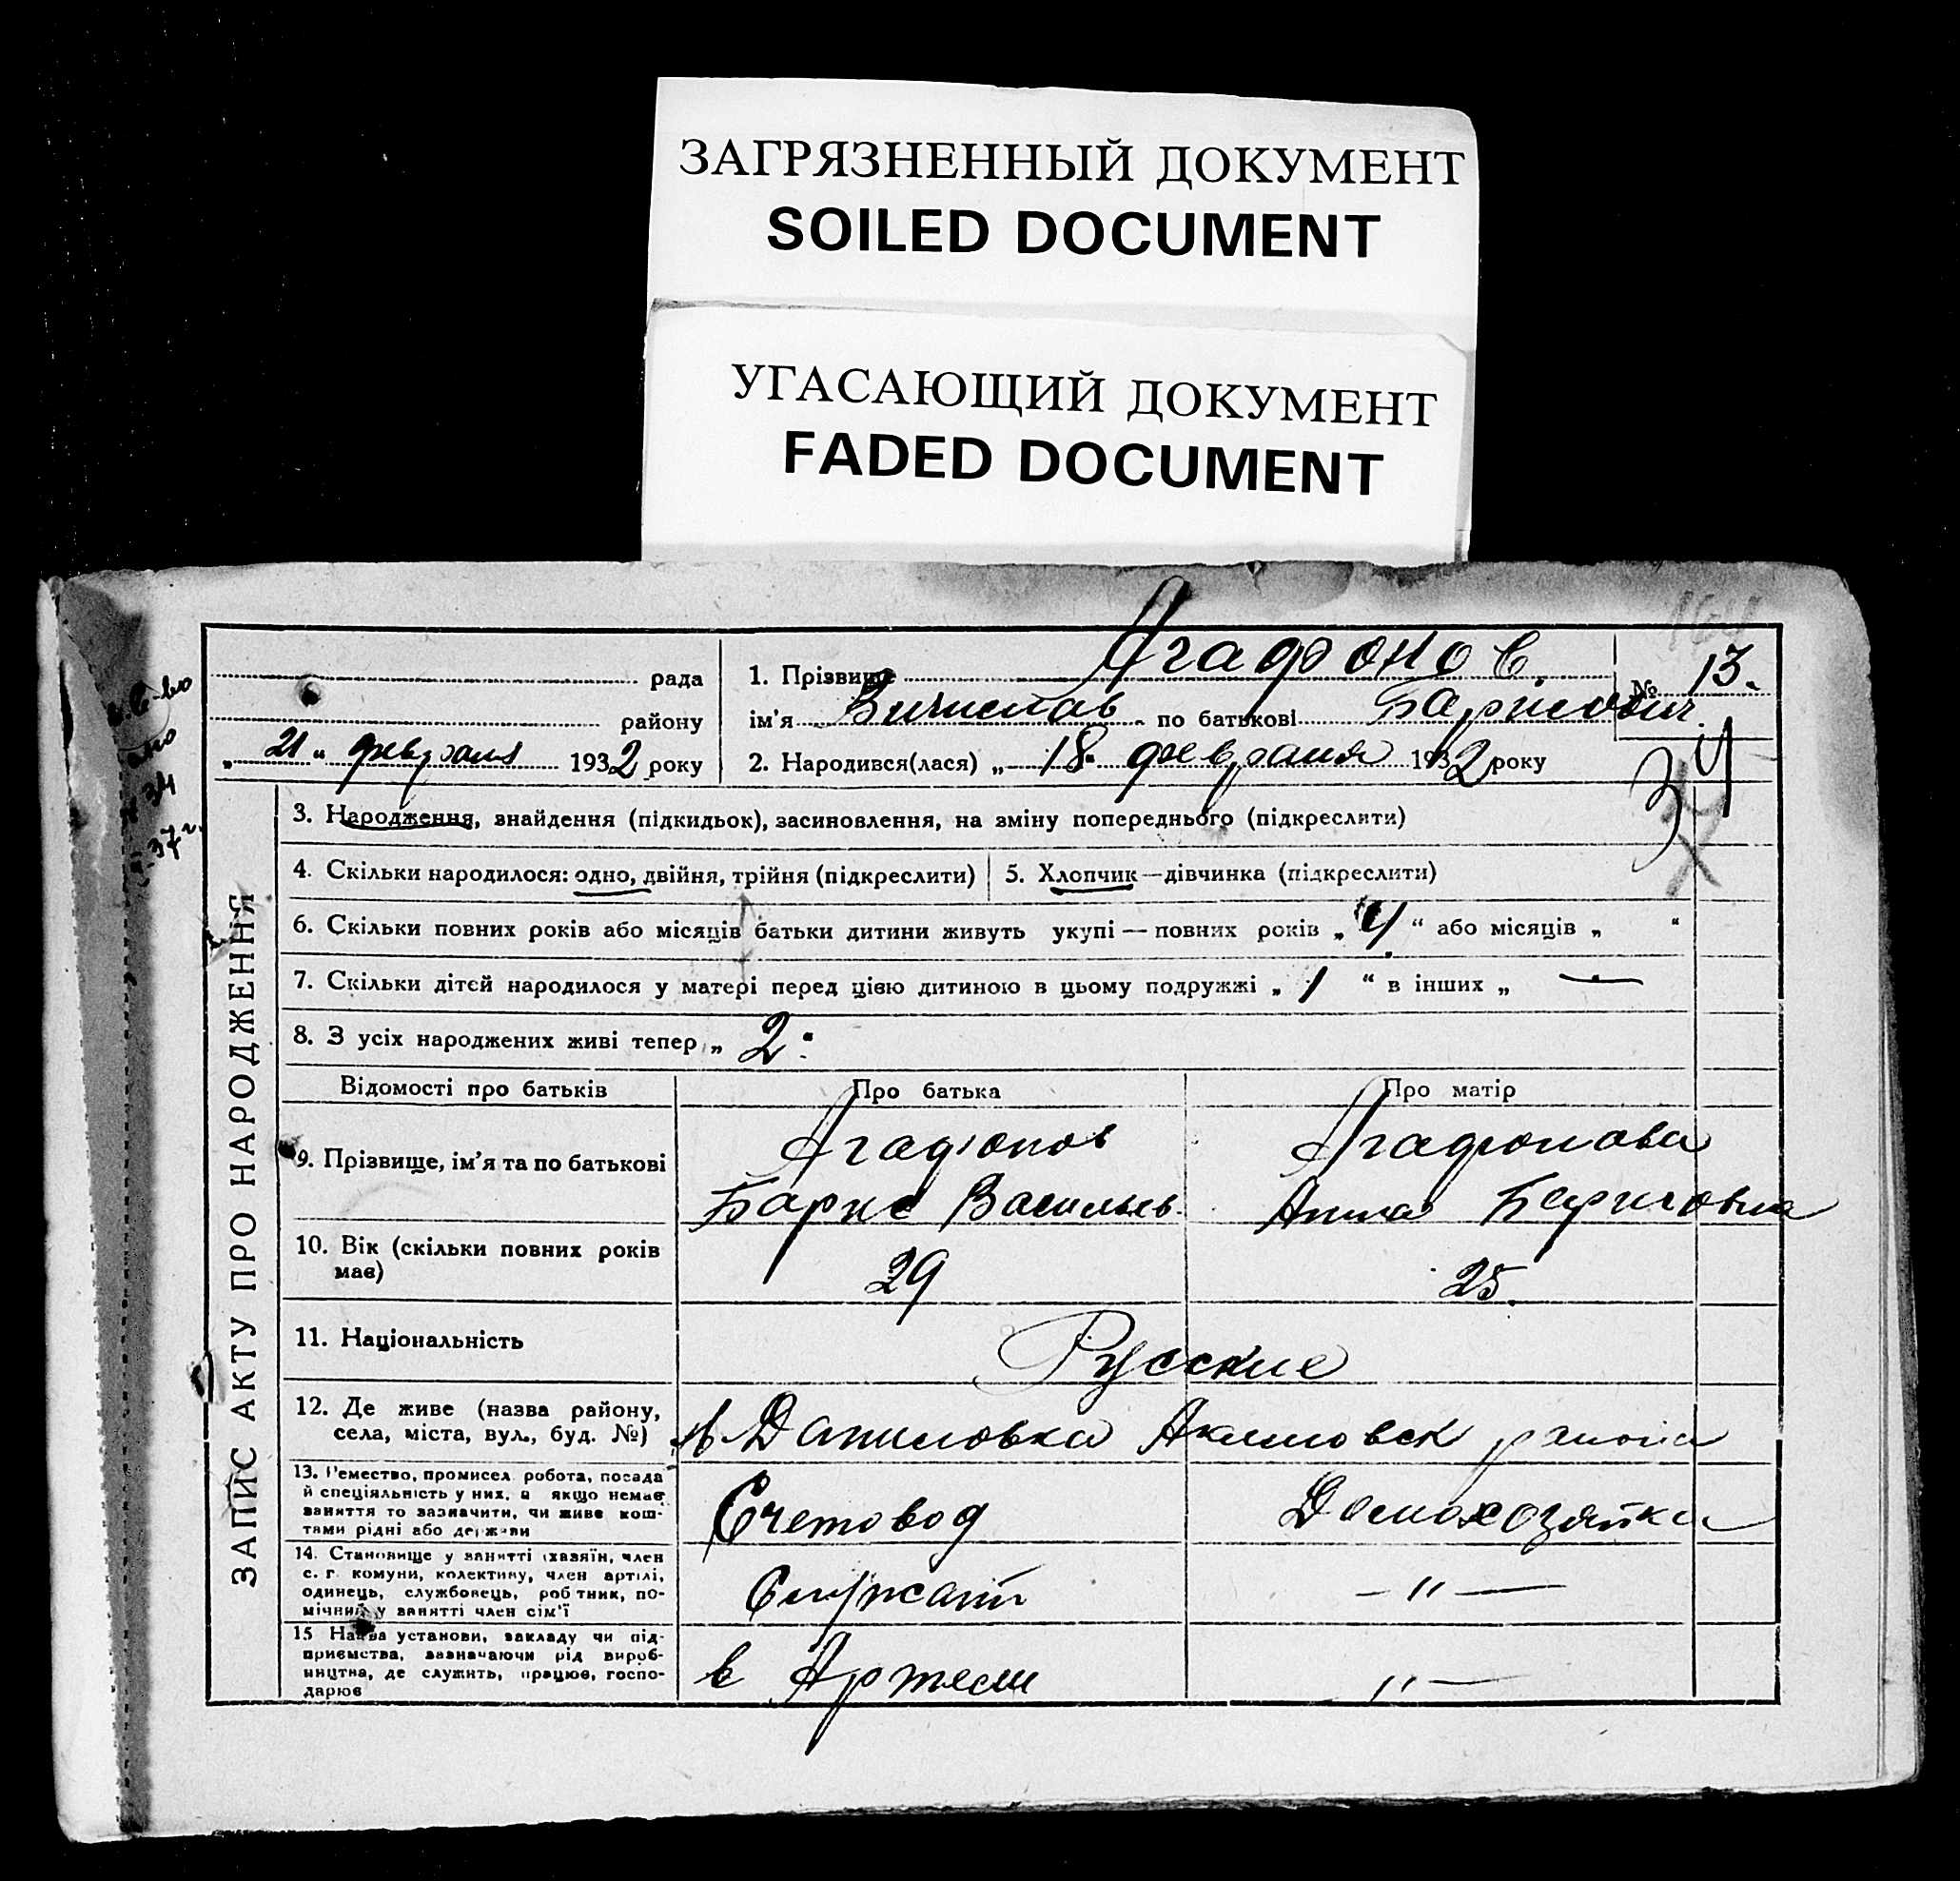 ЗАГРЯЗНЕННЫЙ ДОКУМЕНТ
SOILED DOCUMENT
УГАСАЮЩИЙ ДОКУМЕНТ
FADED DOCUMENT
ЗАПИС АКТУ ПРО НАРОДЖЕННЯ
рада
району
„ 21 “ февраля 1932 року
1. Прізвище Агафонов
№ 13.
ім'я Вичислав по батькові Барисович
2. Народився(лася) „ 18 “ февраля 1932 року
34
3. Народження, знайдення (підкидьок), засиновлення, на зміну попереднього (підкреслити)
4. Скільки народилося: одно, двійня, трійня (підкреслити)
5. Хлопчик—дівчинка (підкреслити)
6. Скільки повних років або місяців батьки дитини живуть укупі — повних років „ 4 “ або місяців „ “
7. Скільки дітей народилося у матері перед цією дитиною в цьому подружжі „ 1 “ в інших „ — “
8. З усіх народжених живі тепер „ 2 “
Відомості про батьків Про батька Про матір
9. Прізвище, ім'я та по батькові
Агафонов
Барис Васильев
Агафонова
Анна Барисовна
10. Вік (скільки повних років має)
29 25.
11. Національність
Русские
12. Де живе (назва району,
села, міста, вул., буд. №)
Даниловка Акимовск района
13. Ремество, промисел робота, посада
й спеціяльність у них, а якщо немає
заняття то зазначити, чи живе кош-
тами рідні або держави
Счетовод
Домохозяйка
14. Становище у занятті (хазяїн, член
с.-г. комуни, колективу, член артілі,
одинець, службовець, робітник, по-
мічний у занятті член сім'ї
Служащ
— " —
15 Назва установи, закладу чи під-
приємства, зазначаючи рід вироб-
ництва, де служить, працює, госпо-
дарює
в Артели
" —